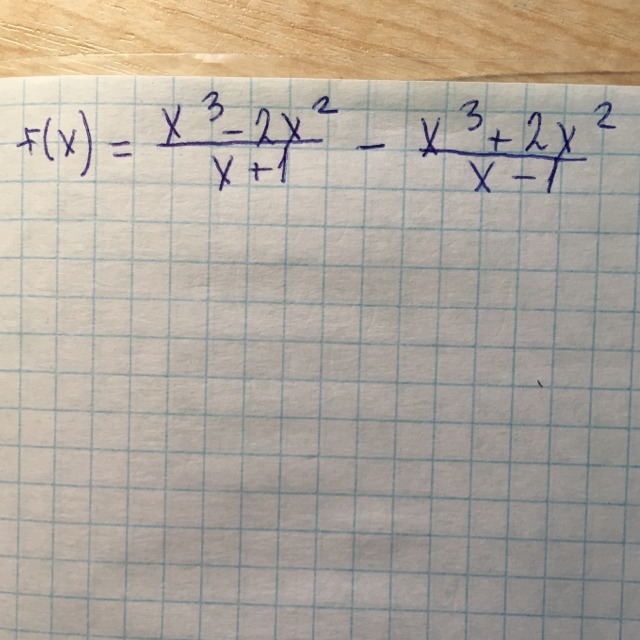 f(x) = (x³ - 2x²)/(x + 1) - (x³ + 2x²)/(x - 1)